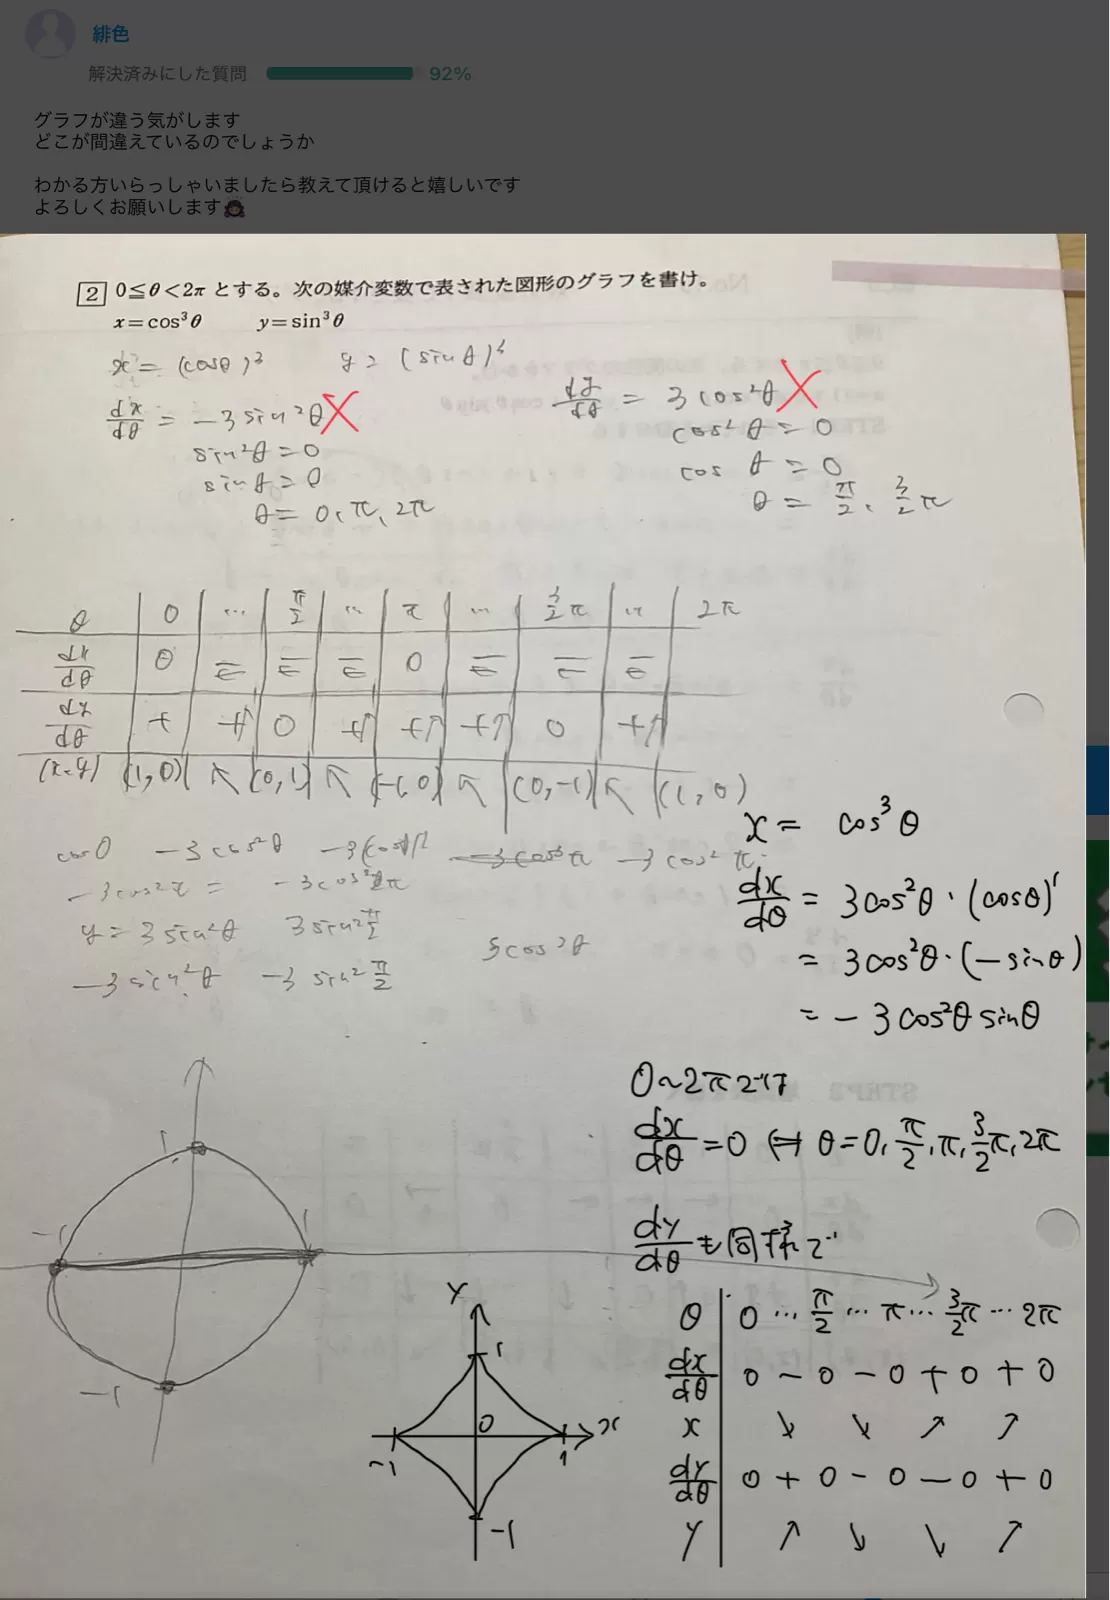 緋色
解決済みにした質問 92%
グラフが違う気がします
どこが間違えているのでしょうか
わかる方いらっしゃいましたら教えて頂けると嬉しいです
よろしくお願いします🙇
2 0≦θ<2π とする。次の媒介変数で表された図形のグラフを書け。
x=cos³θ y=sin³θ
x = (cosθ)³ y = (sinθ)³
dx/dθ = -3sin²θ X
sin²θ = 0
sinθ = 0
θ = 0, π, 2π
dy/dθ = 3cos²θ X
cos²θ = 0
cos θ = 0
θ = π/2, 3/2π
θ 0 … π/2 … π … 3/2π … 2π
dx/dθ 0 - - - 0 - - -
dy/dθ + + 0 + + + 0 +
(x,y) (1,0) ↖ (0,1) ↖ (-1,0) ↖ (0,-1) ↖ (1,0)
cosθ -3cos²θ
-3cos²π = -3cos²2π
y = 3sin²θ 3sin²π/2
-3sin²θ -3sin²π/2
3cos²θ
x = cos³θ
dx/dθ = 3cos²θ・(cosθ)'
= 3cos²θ・(-sinθ)
= -3cos²θsinθ
0~2πでは
dx/dθ = 0 ⇔ θ = 0, π/2, π, 3/2π, 2π
dy/dθ も同様で
θ 0 … π/2 … π … 3/2π … 2π
dx/dθ 0 - 0 - 0 + 0 + 0
x ↘ ↘ ↗ ↗
dy/dθ 0 + 0 - 0 - 0 + 0
y ↗ ↘ ↘ ↗
1
-1
1
-1
y
1
0
x
-1
1
-1